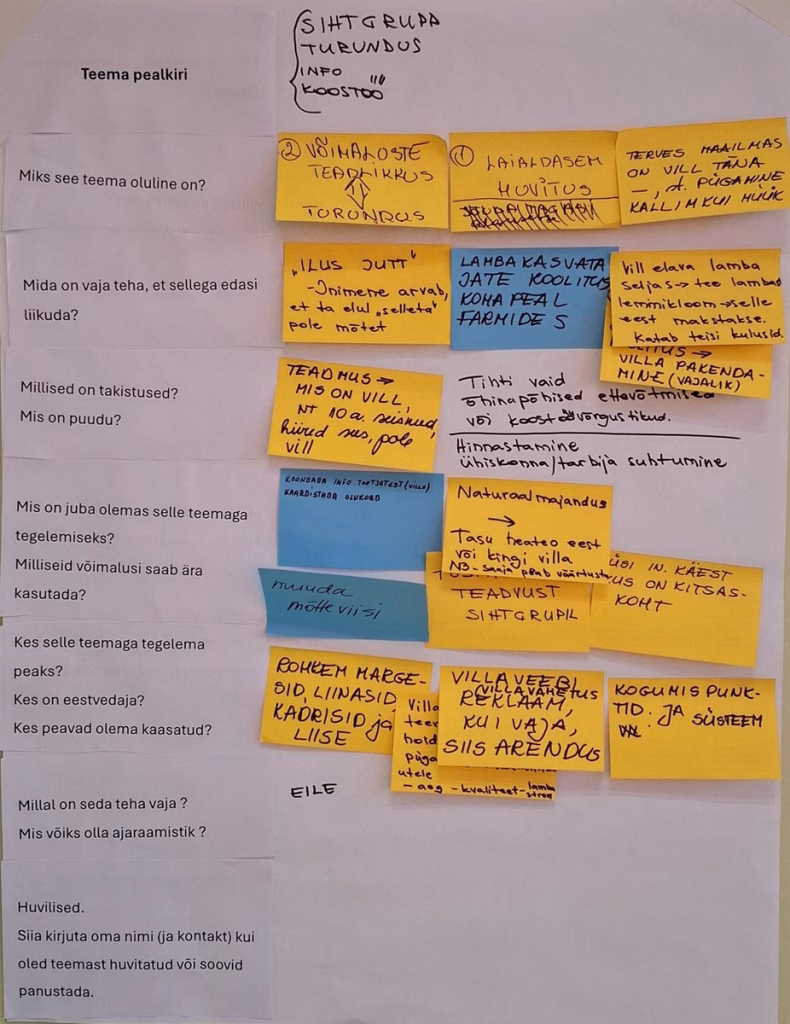 Teema pealkiri
SIHTGRUPP
TURUNDUS
INFO
KOOSTÖÖ
Miks see teema oluline on?
② VÕIMALUSTE
TEADLIKKUS
TURUNDUS
① LAIALDASEM
HUVITUS
TERVES MAAILMAS
ON VILL TÄNA
PÜGAMINE
KALLIM KUI MÜÜK
Mida on vaja teha, et sellega edasi
liikuda?
"ILUS JUTT"
- Inimene arvab,
et ta elul "selleta"
pole mõtet
LAMBAKASVATA
JATE KOOLITUS
KOHA PEAL
FARMIDES
Vill elava lamba
seljas → tee lambast
lemmikloom → selle
eest makstakse.
Katab teisi kulusid.
VILLA PAKENDA-
MINE (VAJALIK)
Millised on takistused?
Mis on puudu?
TEADMUS →
MIS ON VILL,
NT 10 a. seisnud,
hiired sees, pole
vill
Tihti vaid
õhinapõhised ettevõtmised
või koostöövõrgustikud.
Hinnastamine
Ühiskonna/tarbija suhtumine
Mis on juba olemas selle teemaga
tegelemiseks?
Milliseid võimalusi saab ära
kasutada?
KOONDADA INFO TOOTJATEST (VILLA)
KAARDISTADA OLUKORD
Naturaalmajandus
→
Tasu heateo eest
või kingi villa
NB - saaja peab väärtustama
muuda
mõtteviisi
TEADVUST
SIHTGRUPIL
IN. KÄEST
ON KITSAS-
KOHT
Kes selle teemaga tegelema
peaks?
Kes on eestvedaja?
Kes peavad olema kaasatud?
ROHKEM MARGE-
SID, LIINASID,
KADRISID ja
LIISE
Villa
teer
hold
püga
utele
- aeg - kvaliteet - lamba
VILLAVEEBI
(VILLAVAHETUS
REKLAAM,
KUI VAJA,
SIIS ARENDUS
KOGUMISPUNK-
TID. JA SÜSTEEM
Millal on seda teha vaja ?
Mis võiks olla ajaraamistik ?
EILE
Huvilised.
Siia kirjuta oma nimi (ja kontakt) kui
oled teemast huvitatud või soovid
panustada.